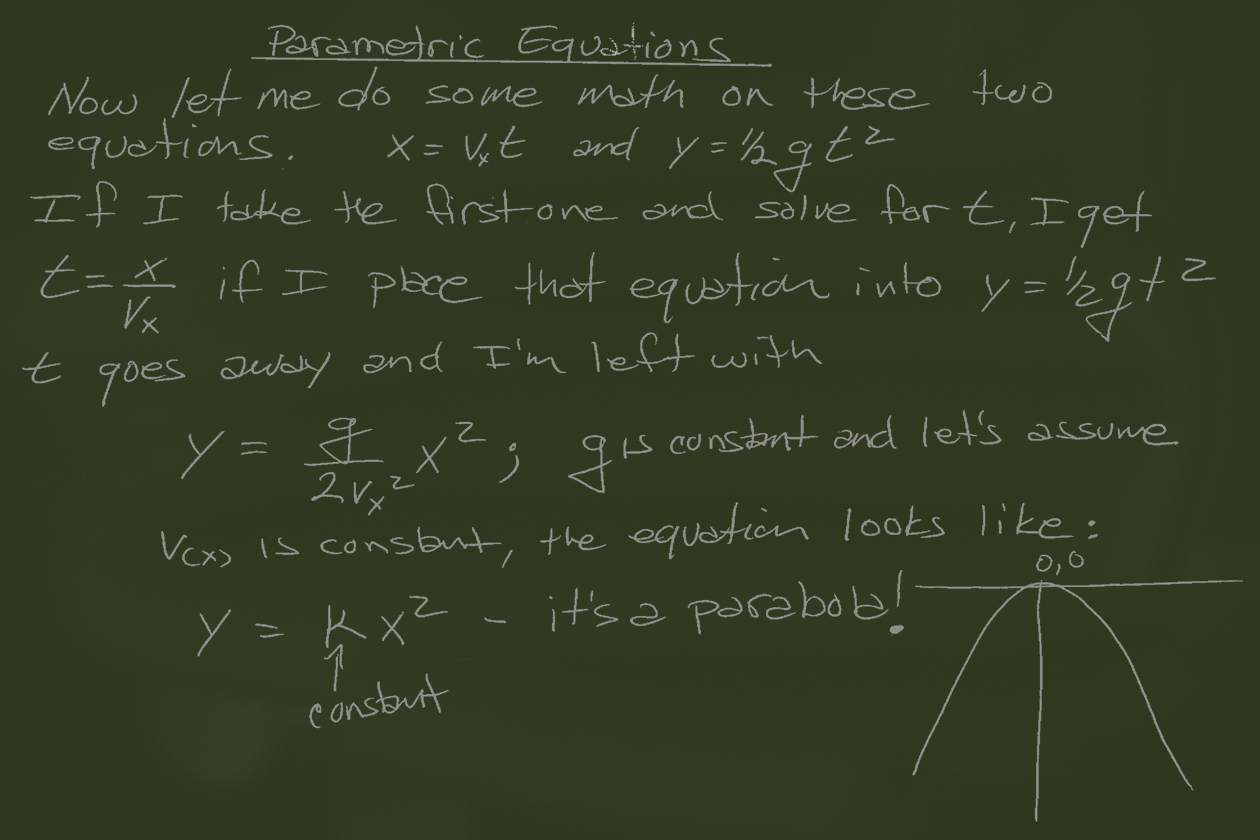 Parametric Equations
Now let me do some math on these two
equations. x = Vₓt and y = ½gt²
If I take the first one and solve for t, I get
t = x/Vₓ if I place that equation into y = ½gt²
t goes away and I'm left with
y = g/2Vₓ² x² ; g is constant and let's assume
V(x) is constant, the equation looks like:
0,0
y = kx² - it's a parabola!
↑
constant